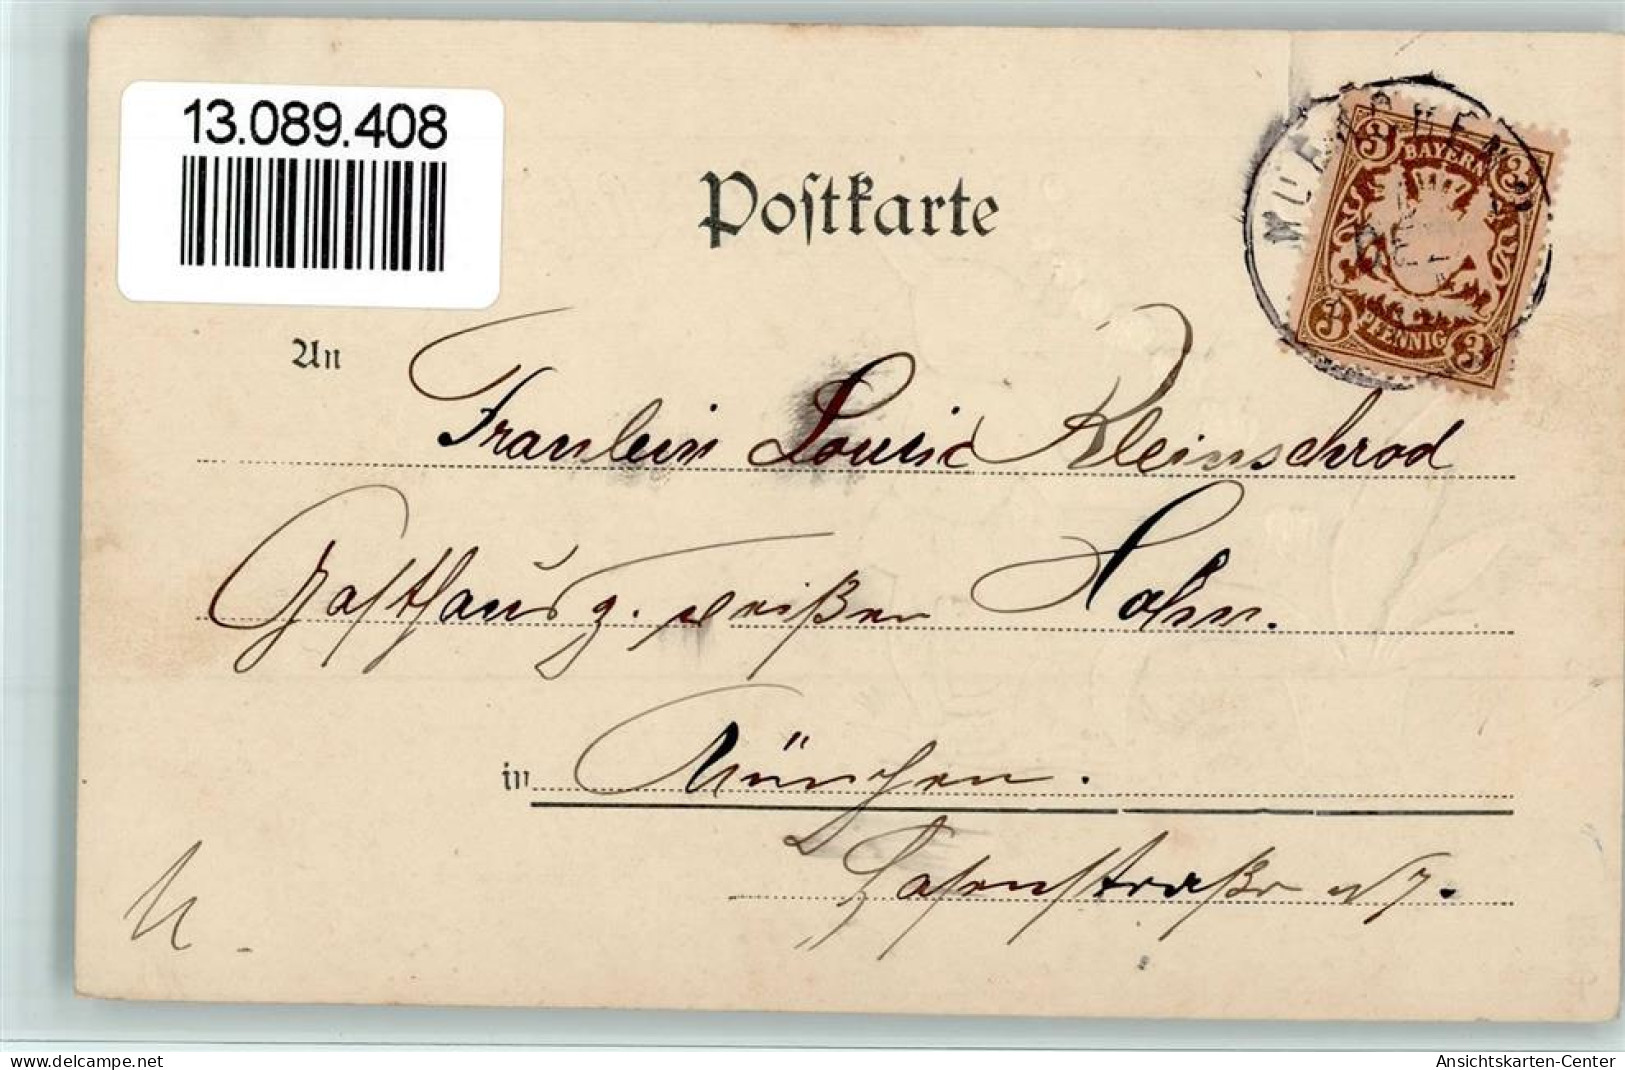 13.089.408
Postkarte
MUENCHEN
DEZ
3 3
BAYERN
PFENNIG
3 3
An
Fraulein Louise Kleinschrod
Gasthaus z. weißen Hahn.
in München.
straße N 7.
delcampe.net
Ansichtskarten-Center